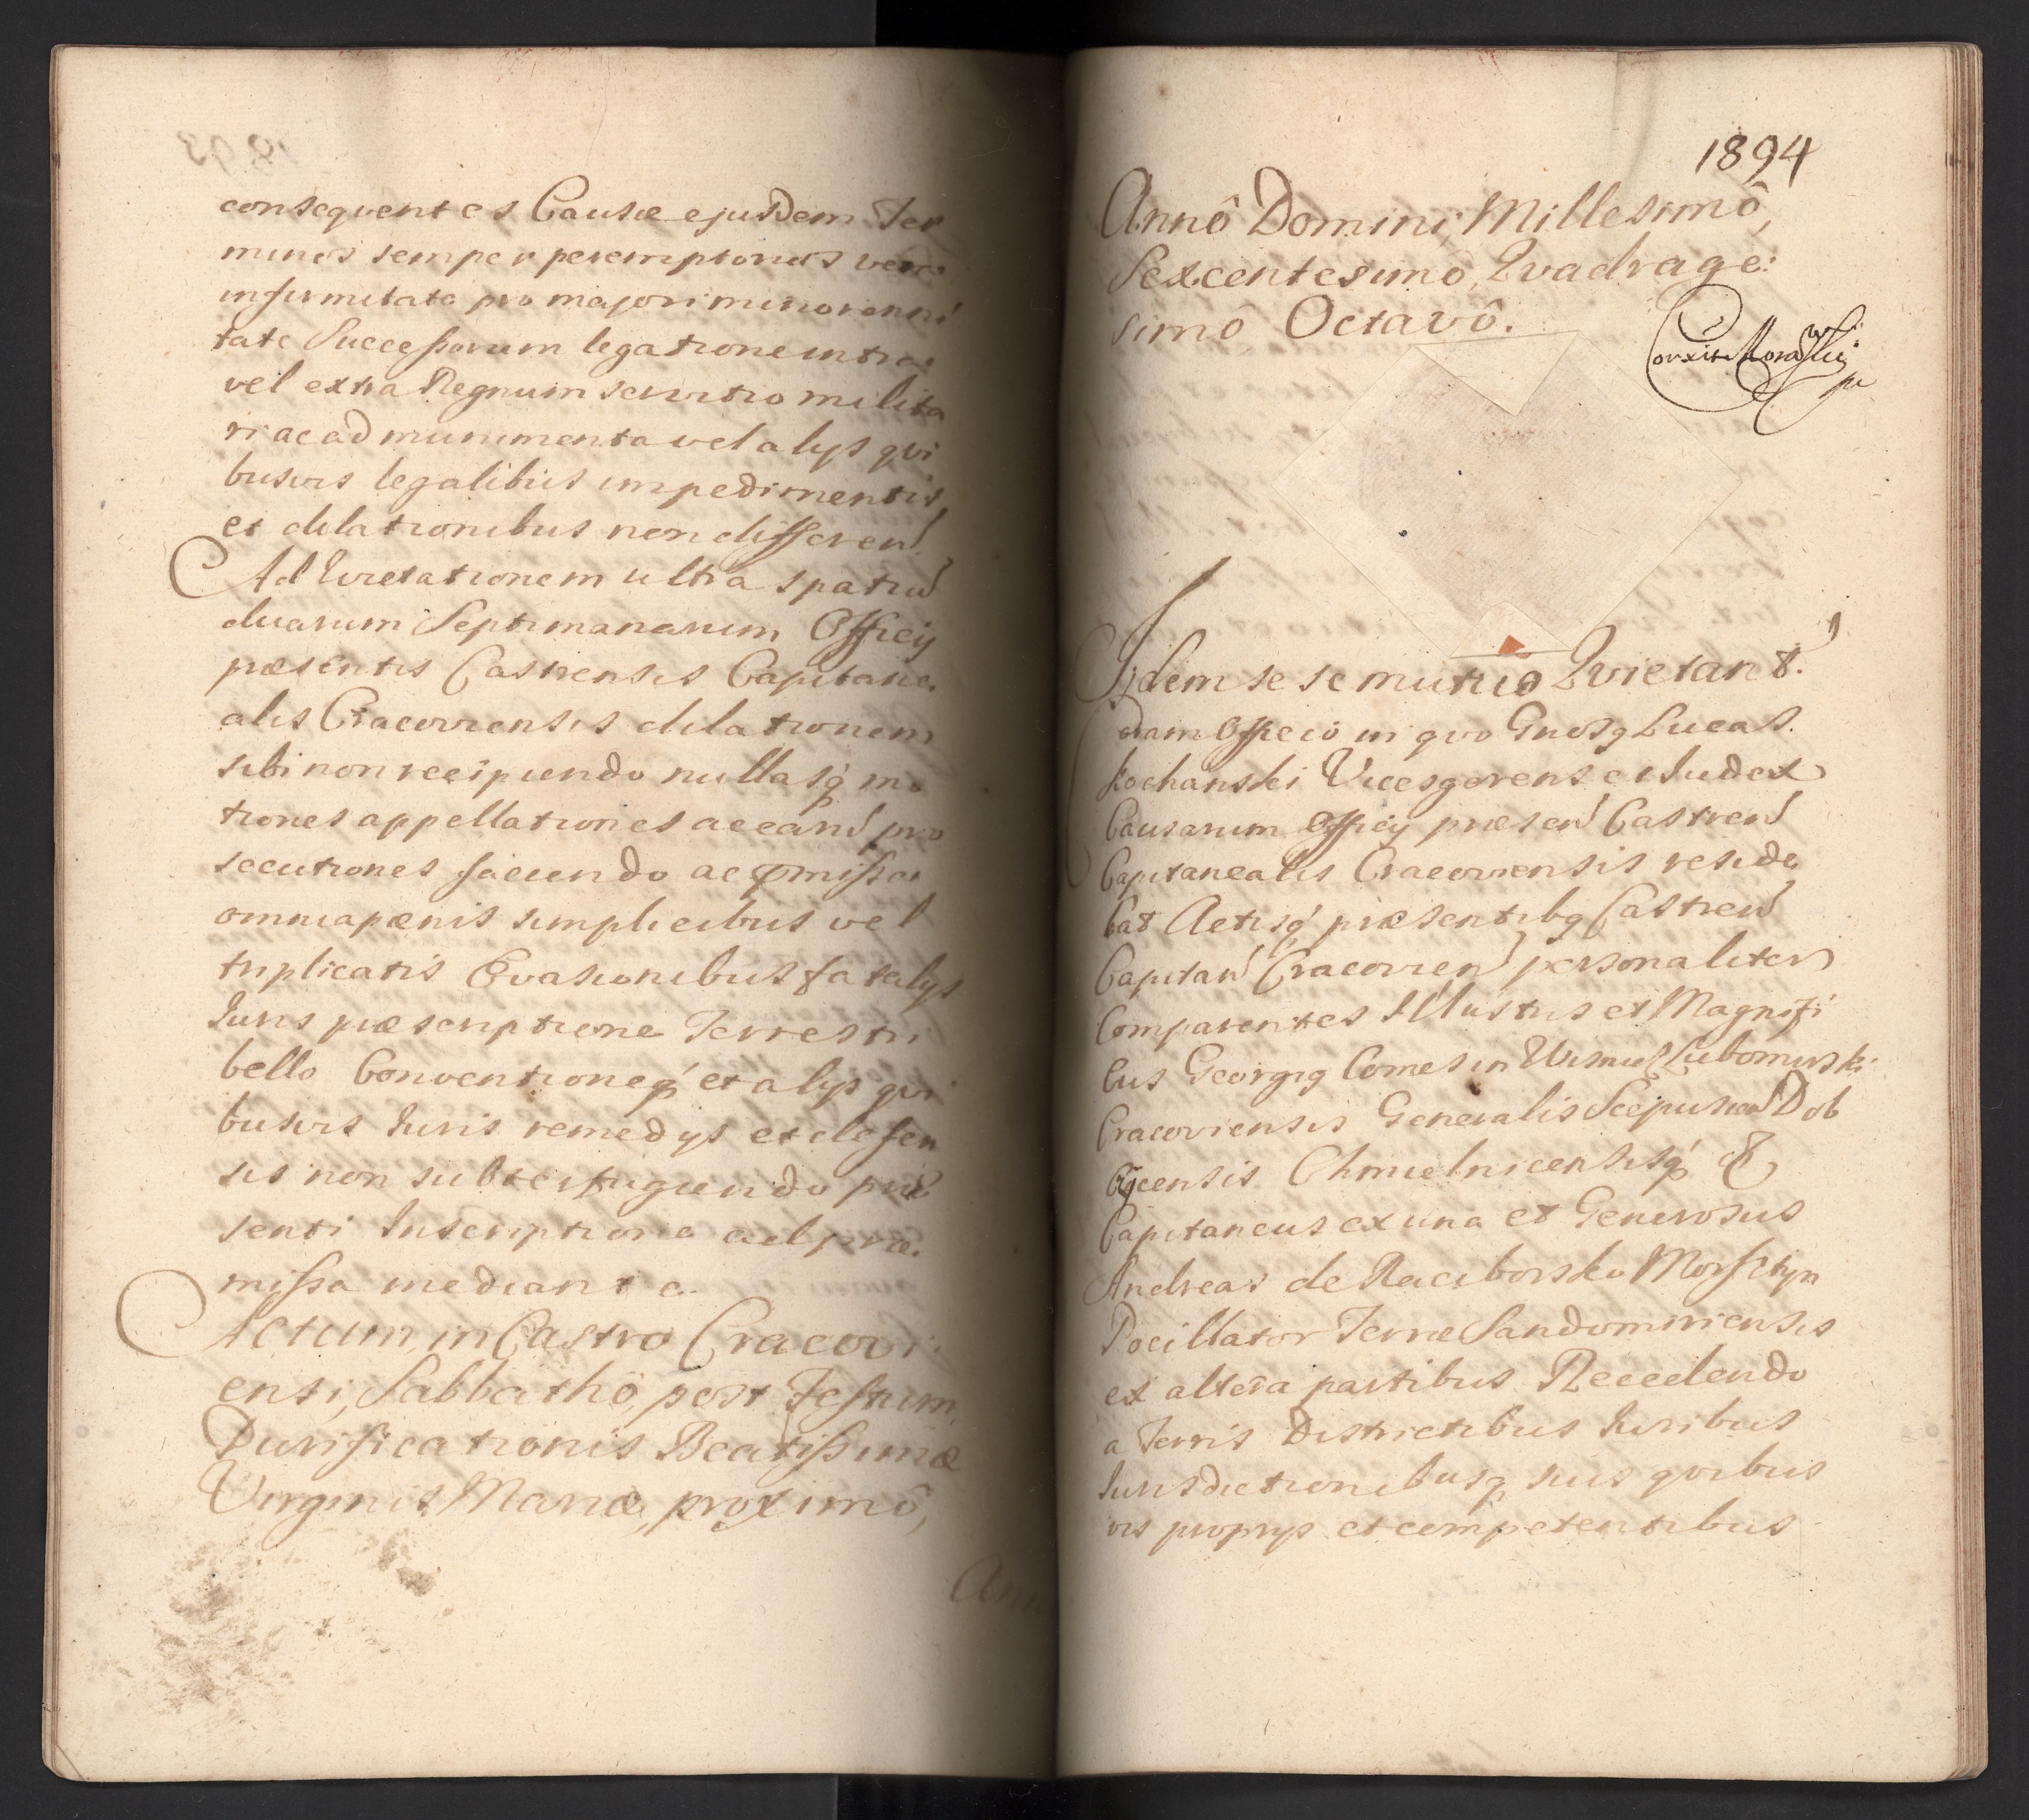 consequentes Causæ ejusdem Ter
minos semper peremptorios vera
infirmitate pro majori minorenni
tate Successorum legatione intra
vel extra Regnum servitio milita
ri ac ad munimenta vel alys qvi
busvis legalibus impedimentis
et dilationibus non differen
Ad Qvietationem ultra spatiu
duarum Septimanarum Officy
præsentis Castrensis Capitane
alis Cracoviensis dilationem
sibi non recipiendo nullasq mo
tiones appellationes aceand pro
secutiones faciendo ac præmissa
omnia pænis simplicibus vel
triplicatis Evasionibus fatalys
Juris præscriptione Terrestri
bello Conventioneq et alys qvi
busvis Juris remedys et defen
sis non subterfugiendo præ
senti Inscriptione ad præ
missa mediante.
Actum in Castro Cracovi
ensi, Sabbathô post Festum
Purificationis Beatissimæ
Virginis Mariæ, proximô,
Ann
1894
Annô Domini, Millesimô,
Sexcentesimô, Qvadrage:
simô Octavô.
Jidem se se mutuo Qvietant.
Coram Officio in qvo Gnosq Lucas
Kochanski Vicesgerens et Judex
Causarum Officy præsen Castren
Capitanealis Cracoviensis reside
bat Actisq præsentibq Castren
Capitan Cracovien personaliter
Comparentes Illustris et Magnifi
cus Georgiq Comes in Wisnicz Lubomirski
Cracoviensis Generalis Scepusien Dob
czycensis Chmielnicensisq &
Capitaneus ex una et Generosus
Andreas de Raciborsko Morsctyn
Pocillator Terræ Sandomiriensis
ex altera partibus Recedendo
a Terris Districtibus Juribus
Jurisdictionibusq suis qvibus
vis proprys et competentibus